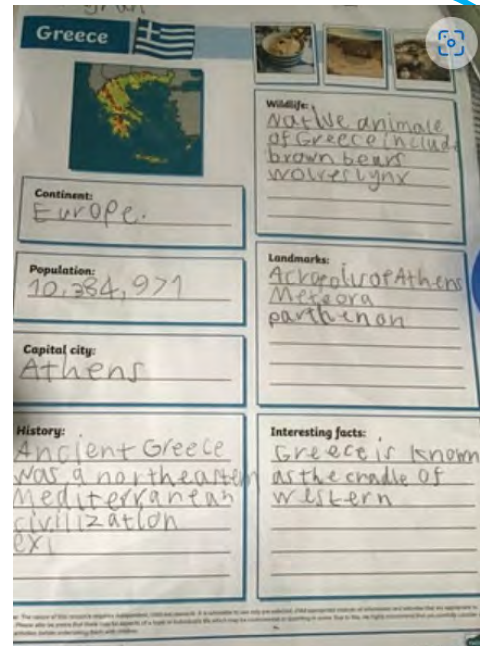 Greece
Continent:
Europe.
Population:
10,384,971
Capital city:
Athens
History:
Ancient Greece
was a northeastern
Mediterranean
civilization
exi
Wildlife:
Native animale
of Greece includ
brown bears
wolves lynx
Landmarks:
Acropolis of Athens
Meteora
parthenon
Interesting facts:
Greece is known
as the cradle of
western